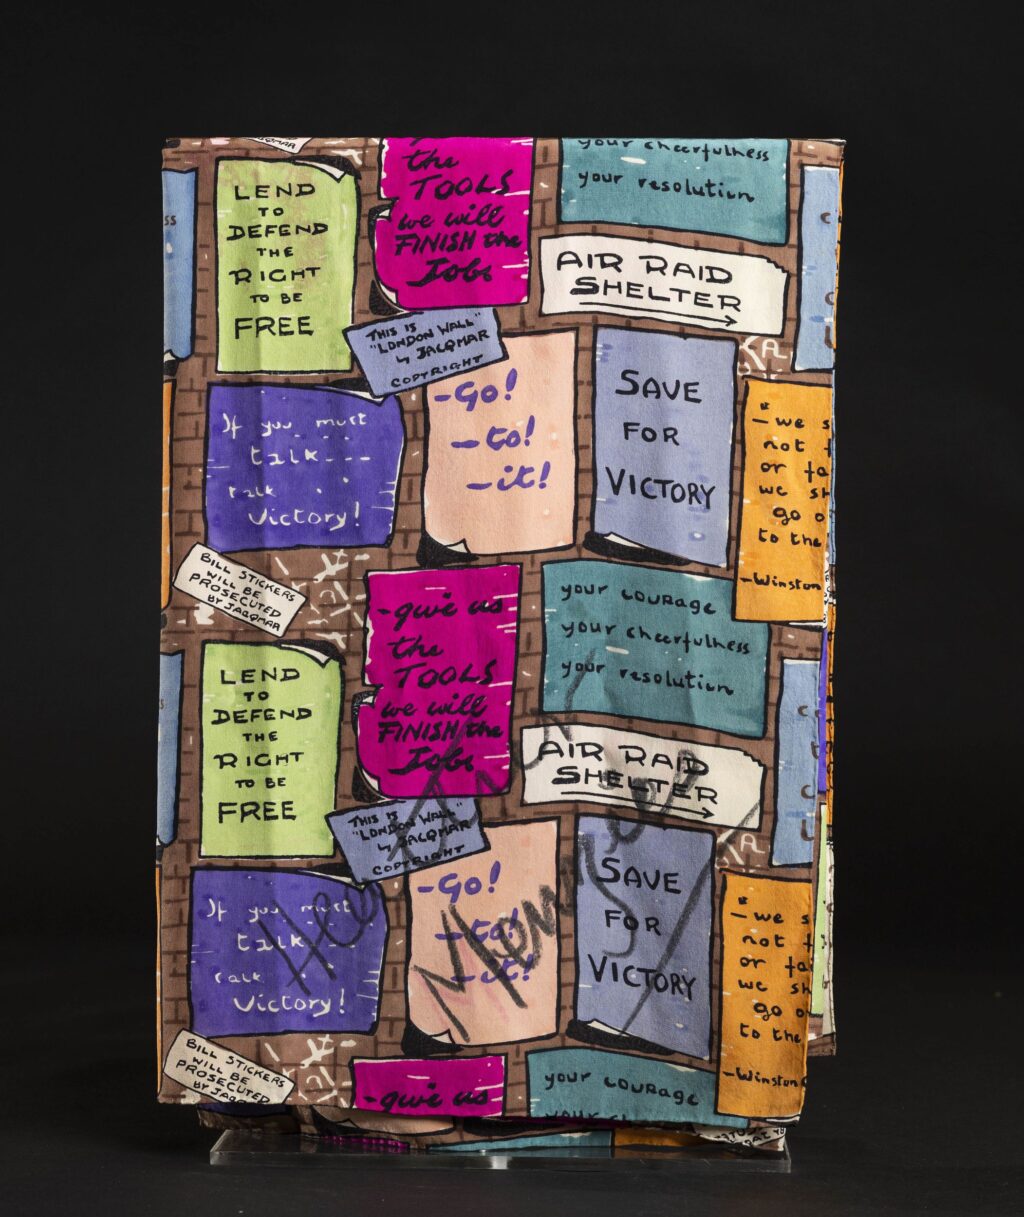 JACQMAR
LEND
TO
DEFEND
THE
RIGHT
TO BE
FREE
the
TOOLS
we will
FINISH the
Jobs
your cheerfulness
your resolution
AIR RAID
SHELTER
THIS IS
"LONDON WALL"
by JACQMAR
COPYRIGHT
If you must
talk - - -
talk . .
Victory!
-Go!
-to!
-it!
SAVE
FOR
VICTORY
-we s
not f
or fa
we sh
go o
to the
-Winston
BILL STICKERS
WILL BE
PROSECUTED
BY JACQMAR
LEND
TO
DEFEND
THE
RIGHT
TO BE
FREE
-give us
the
TOOLS
we will
FINISH the
Jobs
your courage
your cheerfulness
your resolution
AIR RAID
SHELTER
THIS IS
"LONDON WALL"
by JACQMAR
COPYRIGHT
If you must
talk - - -
talk . .
Victory!
-Go!
-to!
-it!
SAVE
FOR
VICTORY
-we s
not f
or fa
we sh
go o
to the
-Winston
BILL STICKERS
WILL BE
PROSECUTED
BY JACQMAR
-give us
your courage